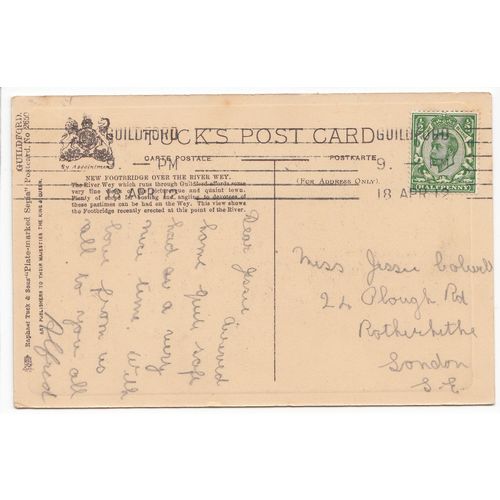 GUILDFORD
TUCK'S POST CARD
GUILDFORD
By Appointment
CARTE POSTALE
POSTKARTE
9. PM
9.
18 APR 12
18 APR 12
HALFPENNY
NEW FOOTBRIDGE OVER THE RIVER WEY.
(FOR ADDRESS ONLY)
The River Wey which runs through Guildford affords some
very fine views of both picturesque and quaint town.
Plenty of scope for boating and angling to devotees of
these pastimes can be had on the Wey. This view shows
the Footbridge recently erected at this point of the River.
GUILDFORD.
Raphael Tuck & Sons' "Plate-marked Sepia" Postcard, No.
ART PUBLISHERS TO THEIR MAJESTIES THE KING & QUEEN.
Dear Jessie arrived
home quite safe
had a very
nice time. With
love from us
all to you all
Alfred
Miss Jessie
24 Plough Rd
Rotherhithe
London
S.E.